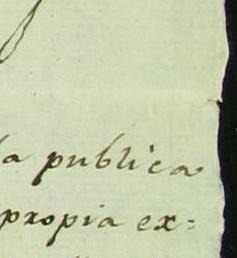 la publica
propia ex=